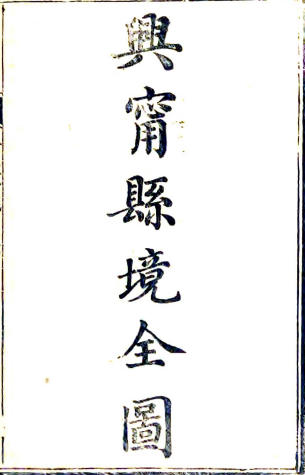 興甯縣境全圖